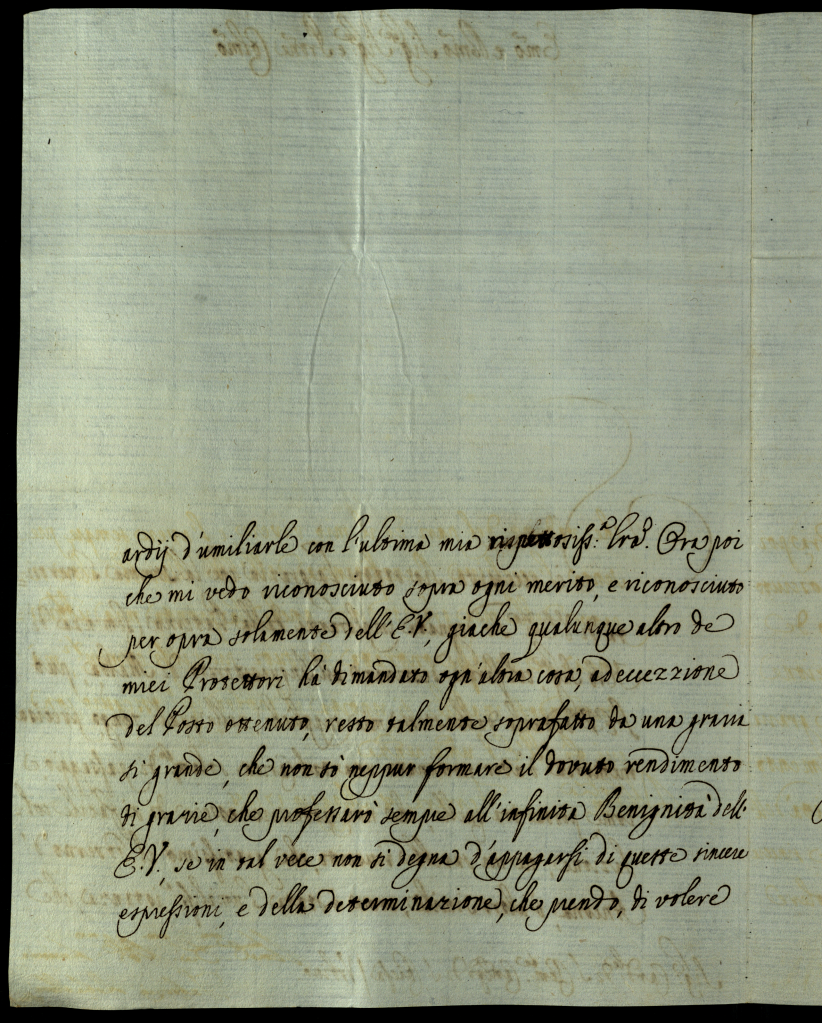 ardij d'umiliarle con l'ultima mia rispettosiss:ª lrã. Ora poi
che mi vedo riconosciuto sopra ogni merito, e riconosciuto
per opra solamente dell'E.V., giache qualunque altro de
miei Protettori hà dimandato ogn'altra cosa, ad eccezzione
del Posto ottenuto, resto talmente soprafatto da una grazia
si grande, che non sò neppur formare il dovuto rendimento
di grazie, che professarò sempre all'infinita Benignità dell'
E.V., se in tal vece non si degna d'appagarsi di queste sincere
espressioni, e della determinazione, che prendo, di volere